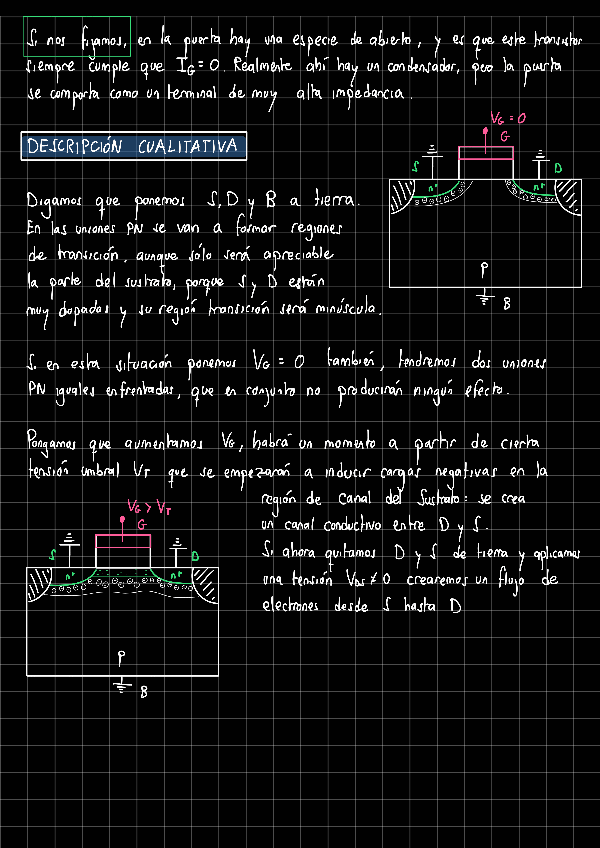 Si nos fijamos, en la puerta hay una especie de abierto, y es que este transistor
siempre cumple que I_G = 0. Realmente ahí hay un condensador, pero la puerta
se comporta como un terminal de muy alta impedancia.
V_G = 0
G
S
D
n+
n+
P
B
DESCRIPCIÓN CUALITATIVA
Digamos que ponemos S, D y B a tierra.
En las uniones PN se van a formar regiones
de transición, aunque sólo será apreciable
la parte del sustrato, porque S y D están
muy dopadas y su región transición será minúscula.
Si en esta situación ponemos V_G = 0 también, tendremos dos uniones
PN iguales enfrentadas, que en conjunto no producirán ningún efecto.
Pongamos que aumentamos V_G, habrá un momento a partir de cierta
tensión umbral V_T que se empezarán a inducir cargas negativas en la
región de canal del sustrato: se crea
un canal conductivo entre D y S.
Si ahora quitamos D y S de tierra y aplicamos
una tensión V_DS ≠ 0 crearemos un flujo de
electrones desde S hasta D
V_G > V_T
G
S
D
n+
n+
P
B